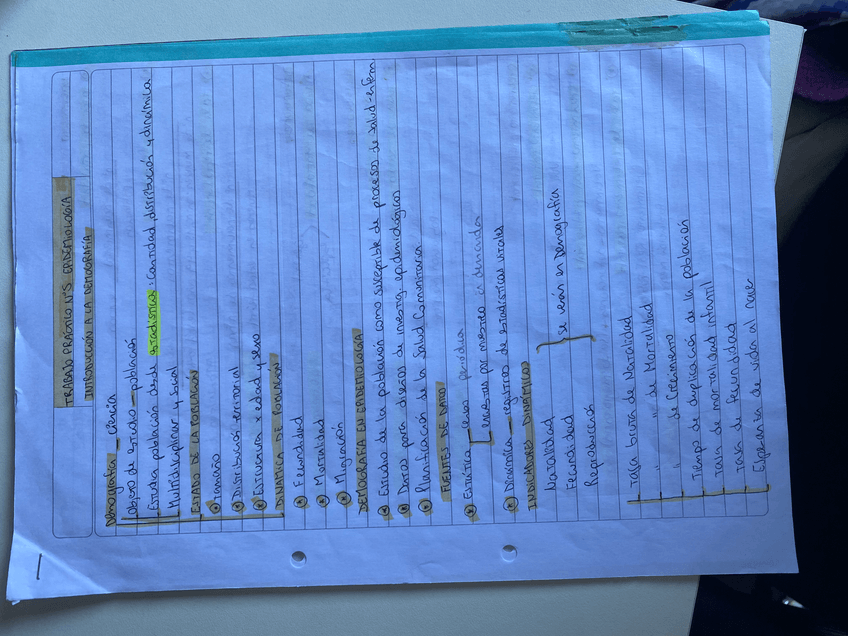 TRABAJO PRÁCTICO N°5 EPIDEMIOLOGÍA
INTRODUCCIÓN A LA DEMOGRAFÍA
Demografía - ciencia
Objeto de estudio - población
Estudia población desde estadística: cantidad, distribución y dinámica
Multidisciplinar y social
ESTADO DE LA POBLACIÓN
Tamaño
Distribución territorial
Estructura x edad y sexo
DINÁMICA DE POBLACIÓN
Fecundidad
Mortalidad
Migración
DEMOGRAFÍA EN EPIDEMIOLOGÍA
Estudio de la población como susceptible de procesos de salud-enferm
Datos para diseños de investig. epidemiológicos
Planificación de la Salud Comunitaria
FUENTES DE DATO
Estática censo periódico
encuestas por muestreo
Dinámica - registros de estadísticas vitales
INDICADORES DINÁMICOS
Natalidad
Fecundidad } se verán en Demografía
Reproducción
Tasa bruta de Natalidad
" " de Mortalidad
" de Crecimiento
Tiempo de duplicación de la población
Tasa de mortalidad infantil
Tasa de fecundidad
Esperanza de vida al nacer